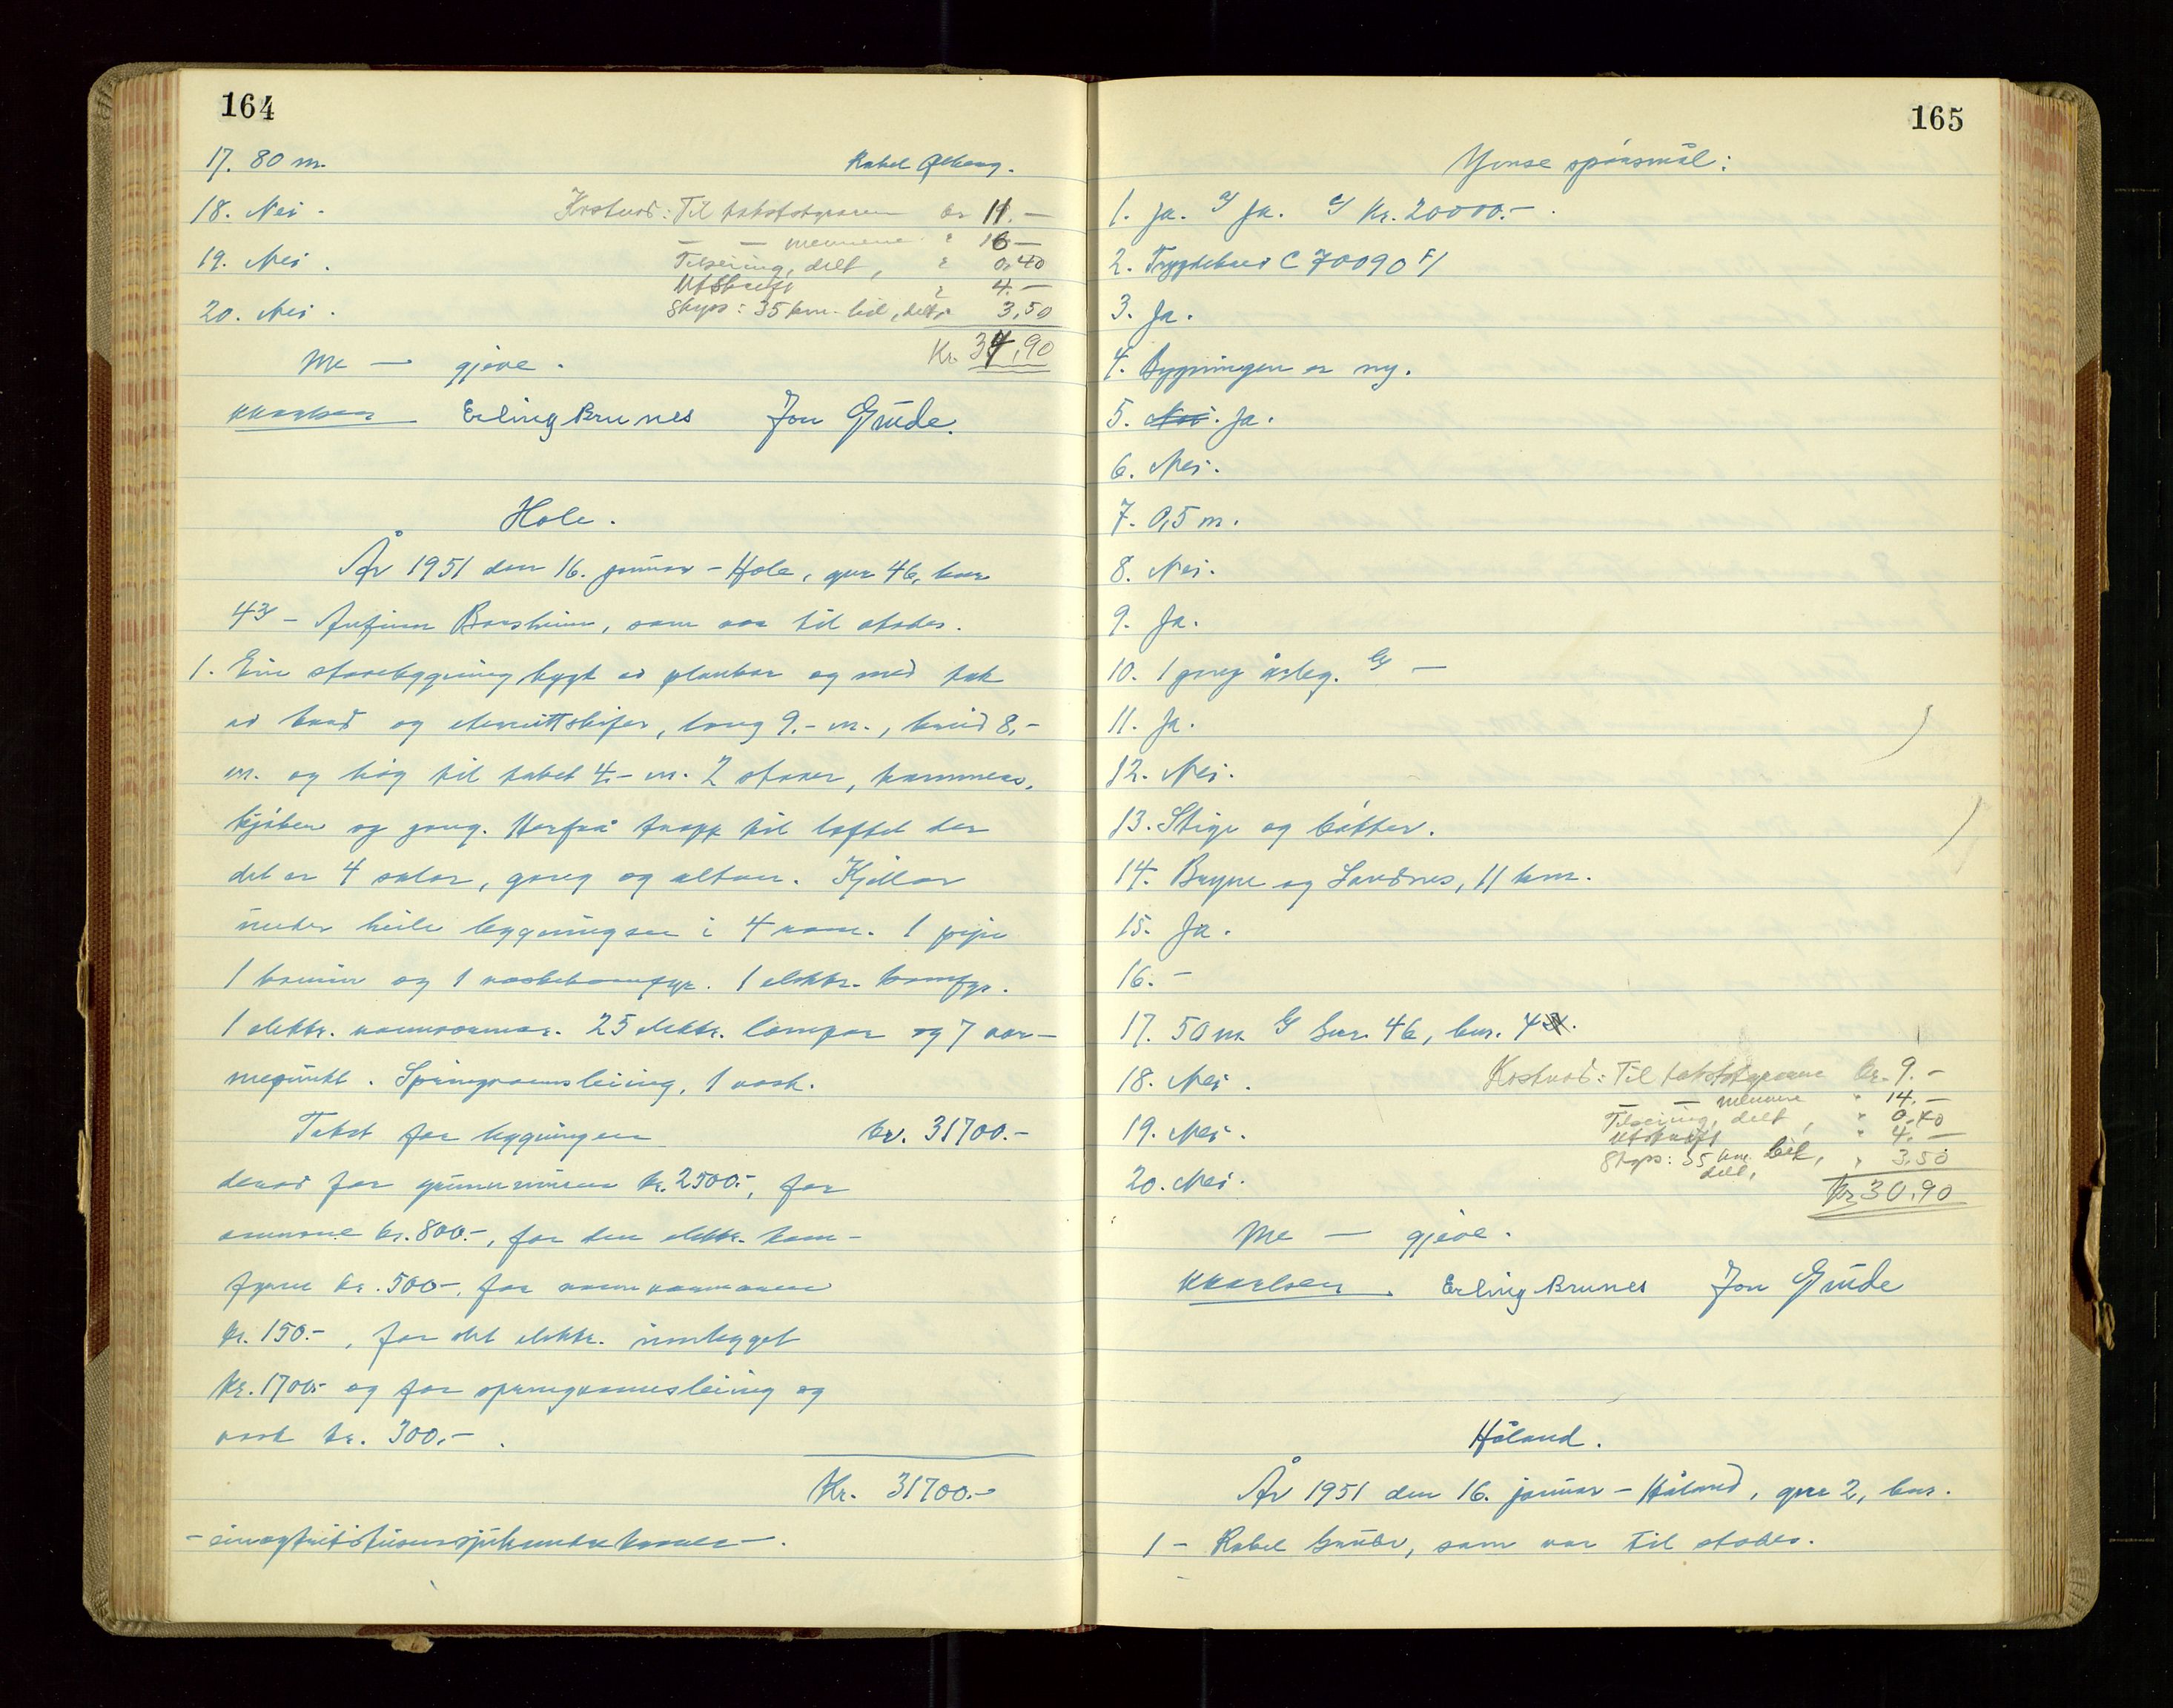 164
17. 80 m. Rakel Ølberg.
18. Nei. Kostnad: Til takststyraren kr 11.—
— — mennene " 16—
19. Nei. Tilseiing, delt, " 0,40
Utskrift " 4.—
20. Nei. Skyss: 35 km. bil, delt, " 3,50
Kr. 34,90
Me — gjeve.
KKarlsen Erling Brunes Jon Grude.
Hole.
År 1951 den 16. januar – Hole, gnr 46, bnr
43 – Anfinn Borsheim, som var til stades.
1. Ein stovebygning bygt av plankar og med tak
av bord og eternittskifer, lang 9.- m., breid 8,-
m. og høg til taket 4.- m. 2 stover, kammers,
kjøken og gang. Herfrå trapp til loftet der
det er 4 salar, gang og altan. Kjellar
under heile bygningen i 4 rom. 1 pipe
1 kamin og 1 vaskekomfyr. 1 elektr. komfyr.
1 elektr. vannvarmar. 25 elektr. lampar og 7 var-
mepunkt. Springvannsleiing, 1 vask.
Takst for bygningen kr. 31700.-
derav for grunnmuren kr. 2500.-, for
omnane kr. 800.-, for den elektr. kom-
fyren kr. 500-, for vannvarmaren
kr. 150.-, for det elektr. innlegget
kr. 1700- og for springvannsleiing og
vask kr. 300.-.
Kr. 31700.-
– einogtrettitusensjuhundre kroner –.
165
Ymse spørsmål:
1. Ja. b/ Ja. c/ Kr. 20000.-.
2. Trygdelaus C 70090 F/
3. Ja.
4. Bygningen er ny.
5. Nei. Ja.
6. Nei.
7. 0,5 m.
8. Nei.
9. Ja.
10. 1 gong årleg. b/ —
11. Ja.
12. Nei.
13. Stige og bøtter.
14. Bryne og Sandnes, 11 km.
15. Ja.
16. –
17. 50 m. b/ Gnr. 46, bnr. 4
18. Nei. Kostnad: Til takststyraren kr. 9.-
— mennene " 14.-
19. Nei. Tilseiing, delt, " 0,40
Utskrift " 4.-
20. Nei. Skyss: 35 km. bil, delt, " 3,50
Kr 30,90
Me — gjeve.
KKarlsen Erling Brunes Jon Grude
Håland.
År 1951 den 16. januar – Håland, gnr 2, bnr.
1 – Rakel Grude, som var til stades.